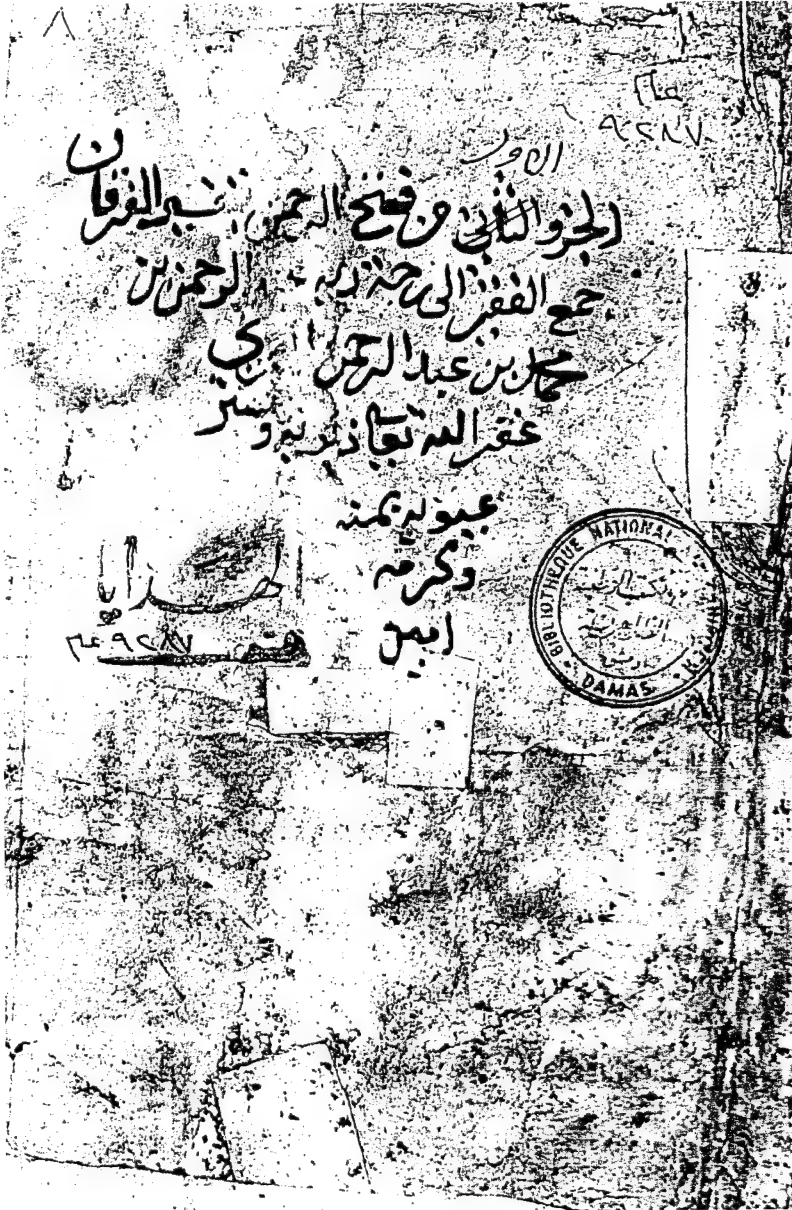 ٨
عام
٩٢٨٧
الاول
الجزو الثاني من فتح الرحمن تفسير القرآن
جمع الفقير الى رحمة ربه الرحمن بن
محمد بن عبد الرحمن
غفر الله تعا ذنوبه وستر
عيوبه بمنه
وكرمه
امين
عام ٩٢٨٧
BIBLIOTHÈQUE NATIONAL
DAMAS